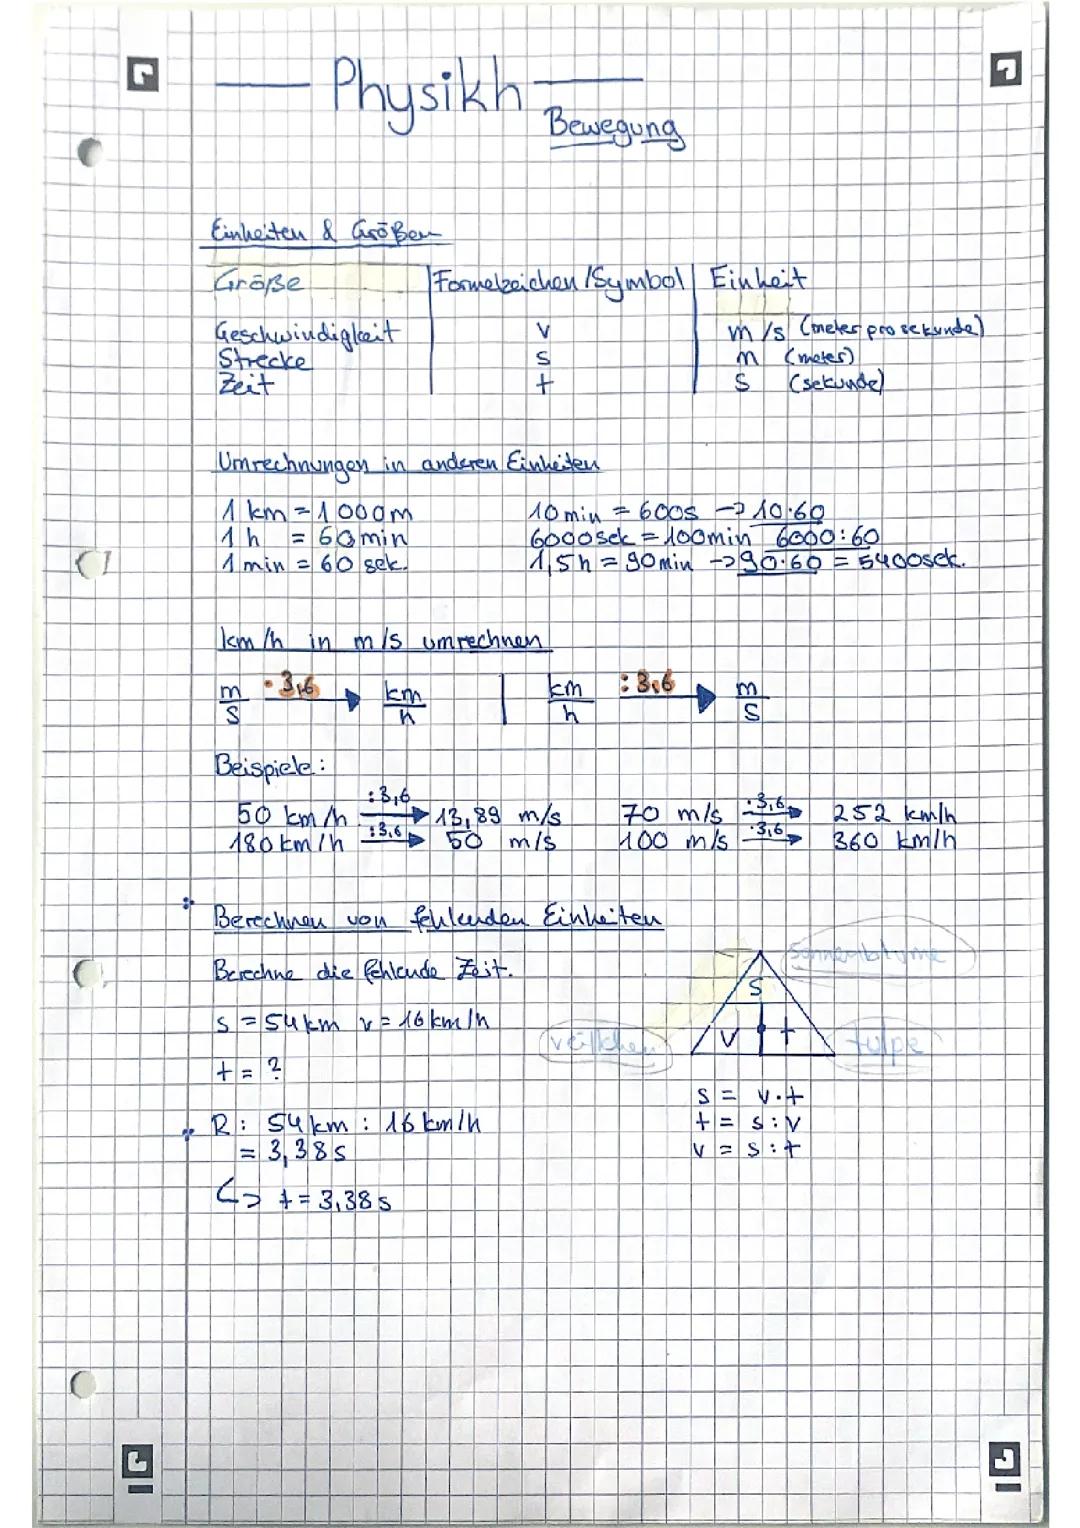 Physikh
Bewegung
Einheiten & Größen
Größe | Formelzeichen/Symbol | Einheit
Geschwindigkeit v m/s (meter pro sekunde)
Strecke s m (meter)
Zeit t s (sekunde)
Umrechnungen in anderen Einheiten
1 km = 1000m 10min = 600s → 10·60
1 h = 60min 6000sek = 100min 6000:60
1 min = 60 sek. 1,5h = 90min → 90·60 = 5400sek.
km/h in m/s umrechnen
m/s ·3,6 → km/h | km/h :3,6 → m/s
Beispiele:
50 km/h :3,6 → 13,89 m/s 70 m/s ·3,6 → 252 km/h
180 km/h :3,6 → 50 m/s 100 m/s ·3,6 → 360 km/h
Berechnen von fehlenden Einheiten
Sonnenblume
Berechne die fehlende Zeit.
s
s = 54km v = 16km/h
veilchen v · t tulpe
t = ?
s = v·t
R: 54km : 16km/h t = s:v
= 3,38s v = s:t
↳ t = 3,38s